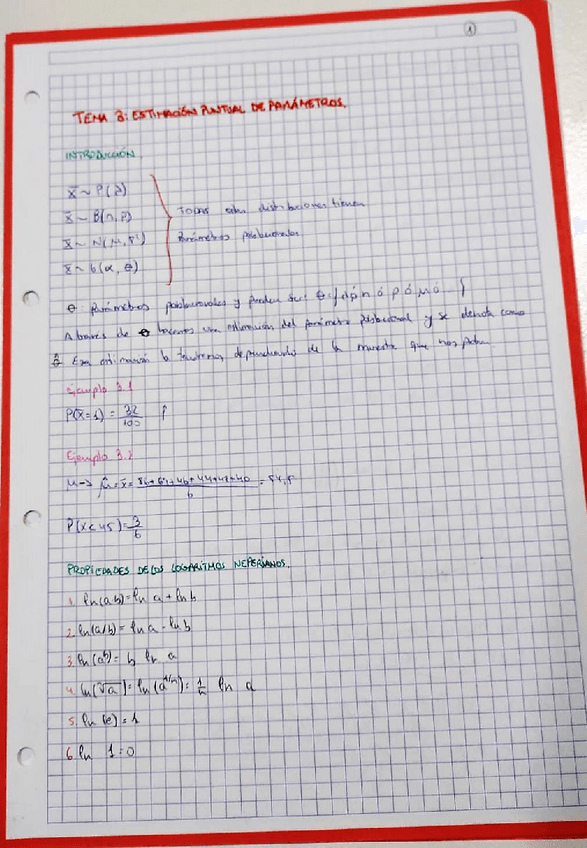 1
TEMA 3: ESTIMACIÓN PUNTUAL DE PARÁMETROS.
INTRODUCCIÓN
X ~ P(λ)
X ~ B(n,p)
X ~ N(μ,σ)
X ~ G(α,θ)
Todas estas distribuciones tienen
Parámetros poblacionales
θ Parámetros poblacionales y pueden ser: θ={λ ó n ó p ó μ ó }
A traves de θ hacemos una estimación del parámetro poblacional y se denota como
θ̂ Esa estimación la tendremos dependiendo de la muestra que nos pidan
Ejemplo 3.1
P(X=1) = 32/100 p̂
Ejemplo 3.2
μ → μ̂ = x̄ = +46+44+48+40/6 = 54,5
P(X<45)=3/6
PROPIEDADES DE LOS LOGARITMOS NEPERIANOS.
1. ln(a·b)=ln a + ln b
2. ln(a/b)= ln a - ln b
3. ln(aᵇ)= b ln a
4. ln(ⁿ√a)= ln(a^1/n)= 1/n ln a
5. ln(e)=1
6. ln 1=0